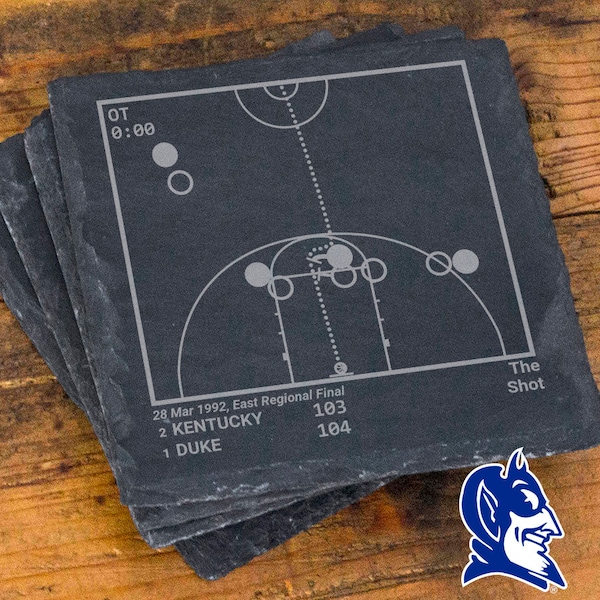 OT
0:00
The
Shot
28 Mar 1992, East Regional Final
2 KENTUCKY 103
1 DUKE 104
®